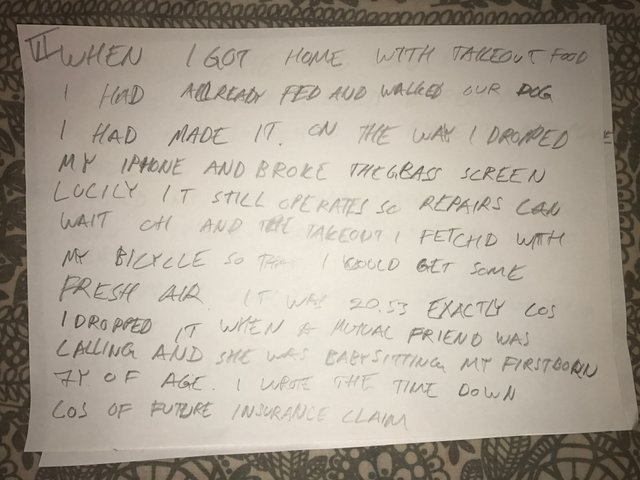 VII WHEN I GOT HOME WITH TAKEOUT FOOD
I HAD ALLREADY FED AND WALKED OUR DOG
I HAD MADE IT. ON THE WAY I DROPPED
MY IPHONE AND BROKE THE GLASS SCREEN
LUCILY IT STILL OPERATES SO REPAIRS CAN
WAIT OH AND THE TAKEOUT I FETCHD WITH
MY BICYCLE SO THAT I COULD GET SOME
FRESH AIR. IT WAS 20.53 EXACTLY COS
I DROPPED IT WHEN A MUTUAL FRIEND WAS
CALLING AND SHE WAS BABYSITTING MY FIRSTBORN
7Y OF AGE. I WROTE THE TIME DOWN
COS OF FUTURE INSURANCE CLAIM